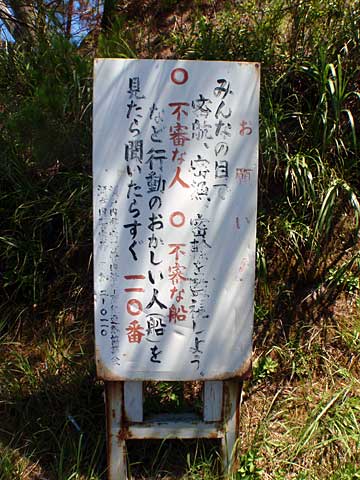 お願い
みんなの目で
密航、密漁、密輸を監視しよう。
○不審な人 ○不審な船
など行動のおかしい人(船)を
見たら聞いたらすぐ 一一〇番